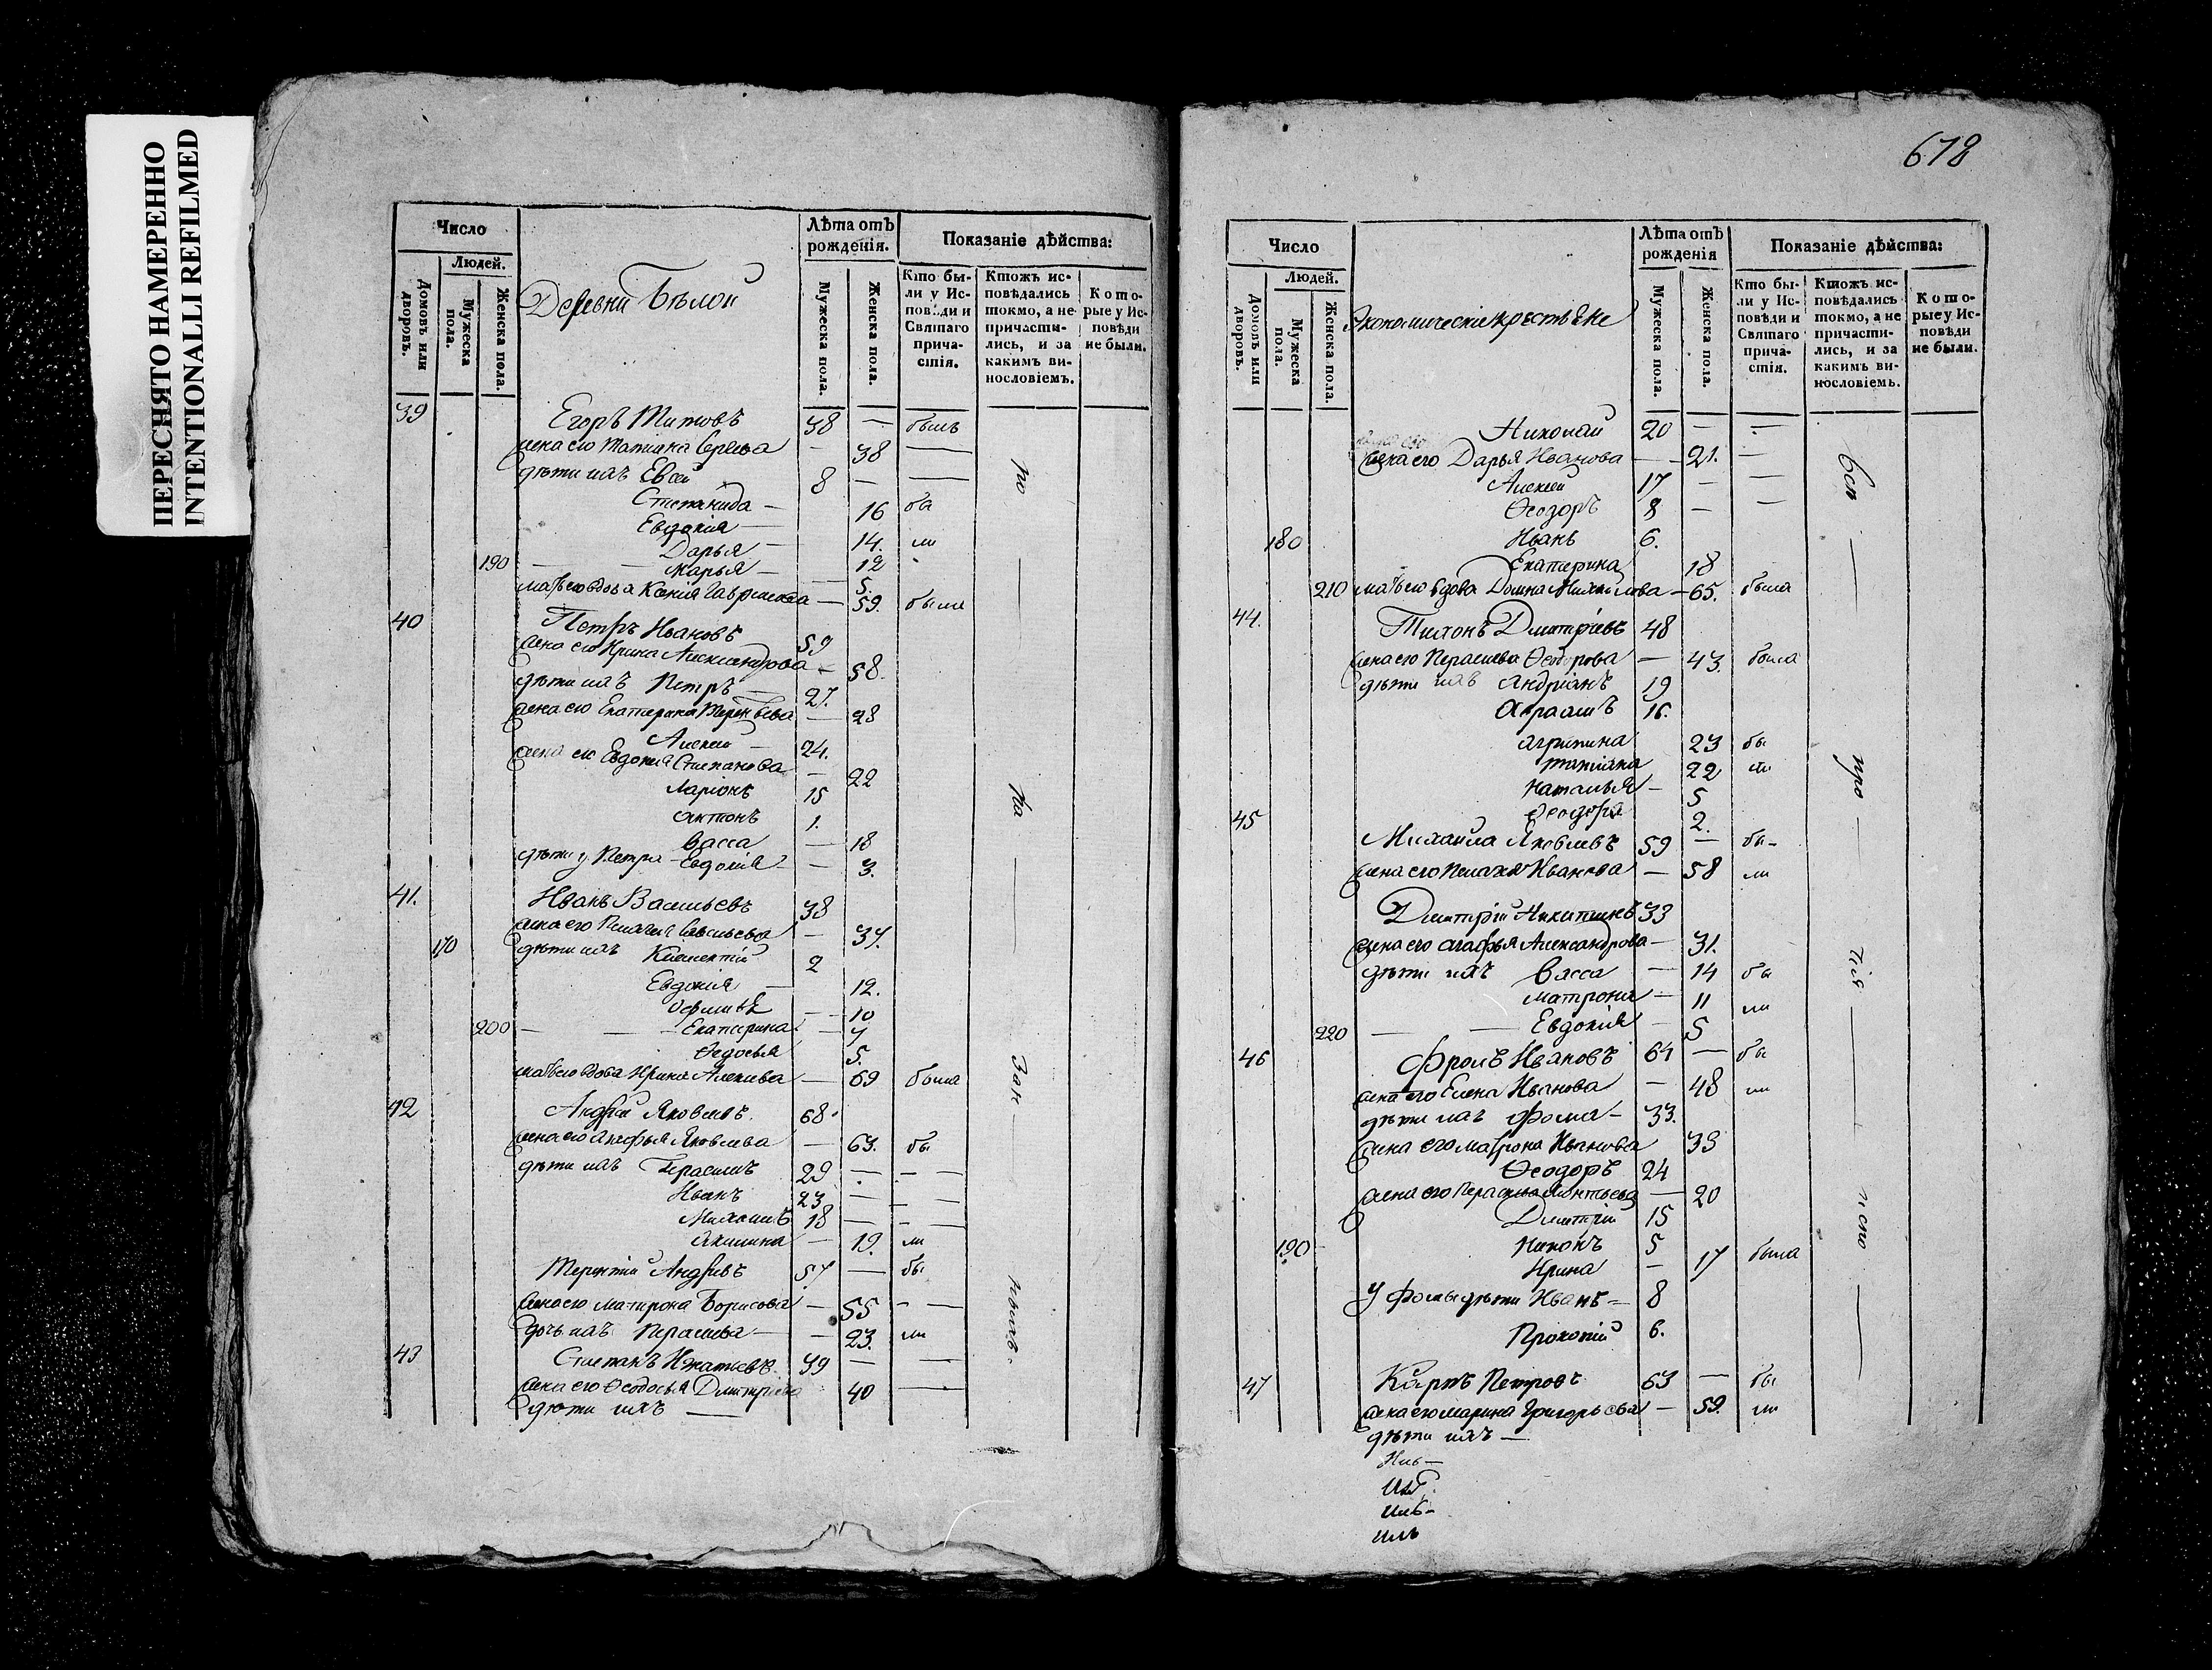 ПЕРЕСНЯТО НАМЕРЕННО
INTENTIONALLI REFILMED
Число
Людей.
Домовъ или дворовъ.
Мужеска пола.
Женска пола.
Деревни Бѣлой
Лѣта отъ рожденія.
Мужеска пола.
Женска пола.
Показаніе дѣйства:
Кто были у Исповѣди и Святаго причастія.
Ктожъ исповѣдались токмо, а не причастились, и за какимъ винословіемъ.
Которые у Исповѣди не были.
39 Егоръ Титовъ 38 — былъ
жена его Татіана — 38 —
дѣти ихъ Евсей 8 — —
Степанида — 16 бы
Евдокія — 14. ли
Дарья — 12
190 — — Марья — 5.
мать его вдова Ксенія Гаврилова — 59. была
40 Петръ Ивановъ 59
жена его Ирина Александрова — 58.
дѣти ихъ Петръ — 27.
жена его Екатерина Терентьева — 28
Алексей — 24.
жена его Евдокія Степанова — 22
Ларіонъ 15
Антонъ 1.
Васса — 18
дѣти у Петра Евдокія — 3.
41. Иванъ Васильевъ 38
жена его Пелагея Савельева — 37.
170 дѣти ихъ Климентій 2
Евдокія — 12.
— 10
200 — — Екатерина — 7
Ѳедосья 5.
мать его вдова Ирина Алексеева — 69 была
42 Андрей Яковлевъ 68.
жена его Агафья Яковлева — 63. бы
дѣти ихъ Герасимъ 29 — — —
Иванъ 23 — — —
Михаилъ 18 — — —
Акилина — 19. ли
Терентій Андреевъ 57 — бы
жена его Матрона Борисова — 55 — —
дочь ихъ Парасковья — 23. ли
43 Степанъ Игнатьевъ 39 — —
жена его Ѳеодосья Дмитріева 40 —
дѣти ихъ —
по — ка — зан — ныхъ
678
Число
Людей.
Домовъ или дворовъ.
Мужеска пола.
Женска пола.
Экономическіе крестьяне
Лѣта отъ рожденія
Мужеска пола.
Женска пола.
Показаніе дѣйства:
Кто были у Исповѣди и Святаго причастія.
Ктожъ исповѣдались токмо, а не причастились, и за какимъ винословіемъ.
Которые у Исповѣди не были.
Николай 20 — —
жена его Дарья Иванова — 21. —
Алексей 17 — —
Ѳеодоръ 8 — —
180 Иванъ 6.
Екатерина 18
210 мать его вдова Домна Михайлова — 65. была
44. Тихонъ Дмитріевъ 48
жена его Парасковья Ѳеодорова — 43. была
дѣти ихъ Андріанъ 19
Авраамъ 16.
Агрипина 23 бы
Татіяна 22 ли
Наталья — 5
Ѳеодора 2.
45 Михаила Яковлевъ 59 — бы-
жена его Пелагея Иванова — 58 ли
Дмитрій Никитинъ 33
жена его Агафья Александрова — 31.
дѣти ихъ Васса — 14 бы
Матрона — 11 ли
220 — — Евдокія — 5
46 Фролъ Ивановъ 64 — бы
жена его Елена Иванова — 48 ли
дѣти ихъ Фома — 33.
жена его Матрона Иванова 33
Ѳеодоръ 24
жена его Парасковья Леонтьева — 20
Дмитрій 15
190 — Никонъ 5
Ирина — 17 была
У Фомы дѣти Иванъ — 8
Прокопій 6.
47 Карпъ Петровъ 63 — бы
жена его Марина Григорьева — 59. ли
дѣти ихъ —